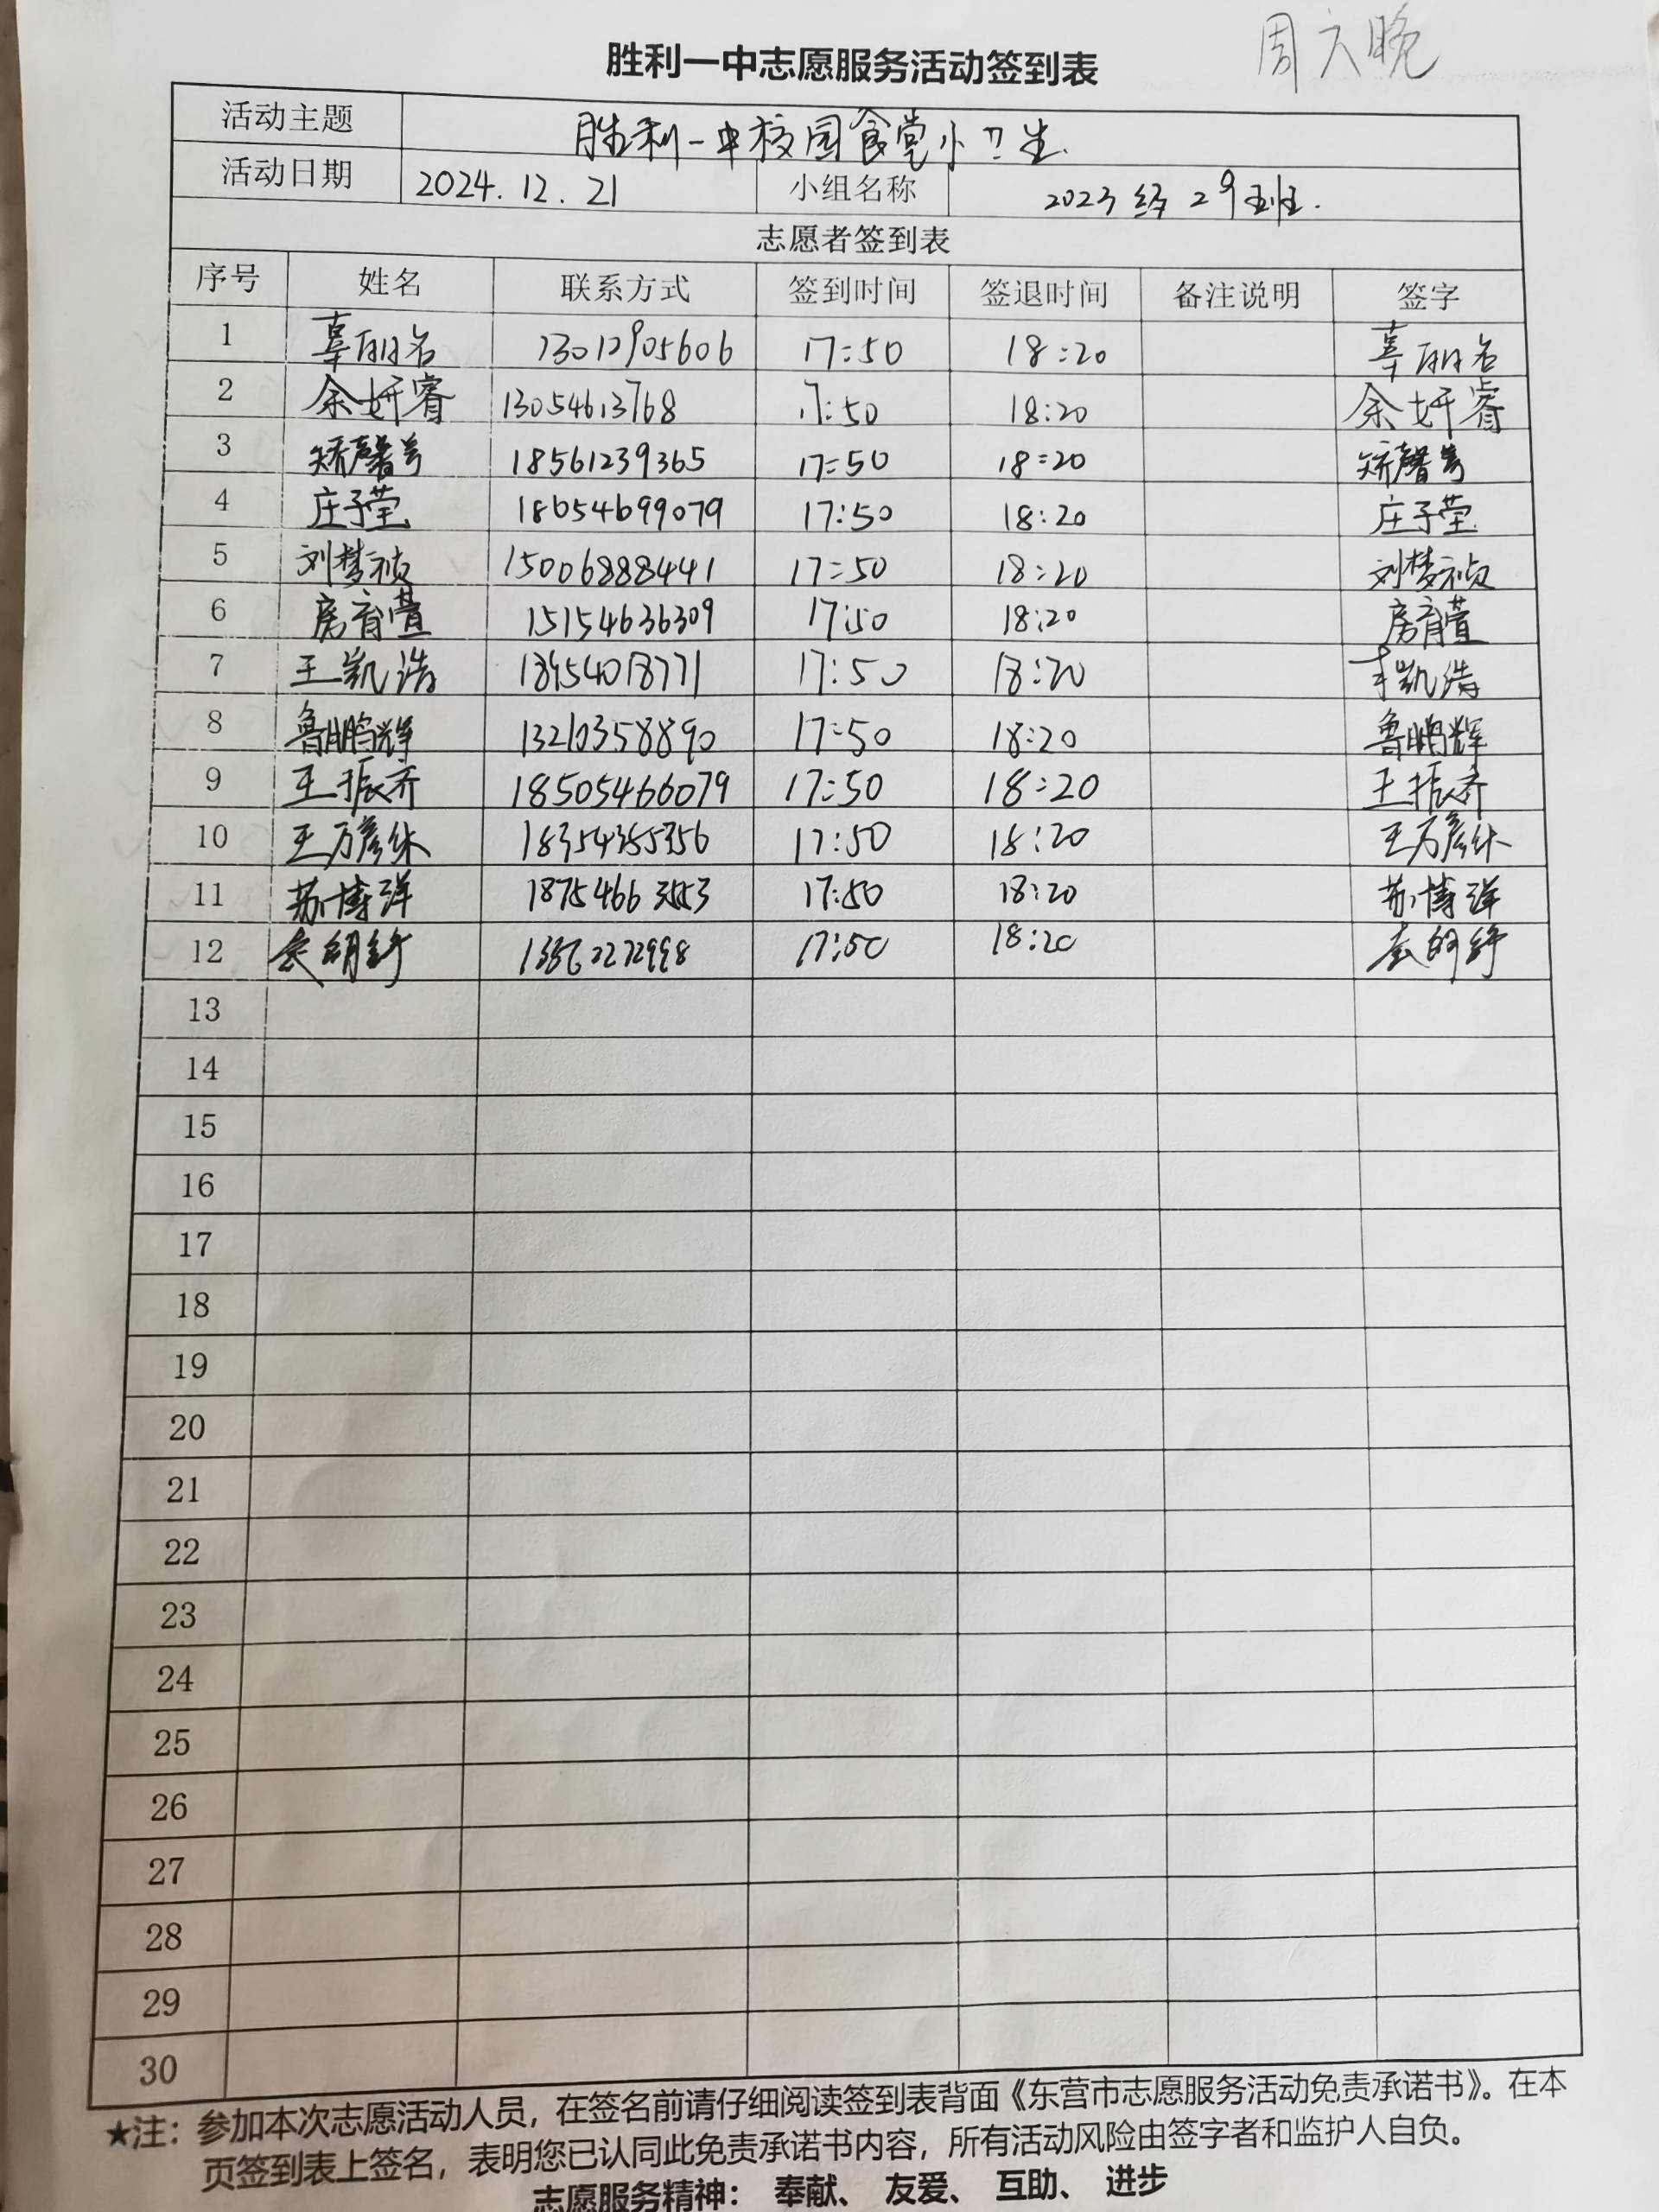 周六晚
胜利一中志愿服务活动签到表
活动主题 胜利一中校园食堂小卫生
活动日期 2024.12.21 小组名称 2023级29班.
志愿者签到表
序号 姓名 联系方式 签到时间 签退时间 备注说明 签字
1 13012905606 17:50 18:20
2 余妍睿 13054613768 17:50 18:20 余妍睿
3 18561239365 17:50 18:20
4 庄子莹 18654699079 17:50 18:20 庄子莹
5 刘梦祯 15006888441 17:50 18:20 刘梦祯
6 房育萱 15154636309 17:50 18:20 房育萱
7 王凯浩 18954018771 17:50 18:20 王凯浩
8 鲁鹏辉 13210358890 17:50 18:20 鲁鹏辉
9 王振齐 18505466079 17:50 18:20 王振齐
10 17:50 18:20
11 苏博洋 17:50 18:20 苏博洋
12 17:50 18:20
13
14
15
16
17
18
19
20
21
22
23
24
25
26
27
28
29
30
★注：参加本次志愿活动人员，在签名前请仔细阅读签到表背面《东营市志愿服务活动免责承诺书》。在本
页签到表上签名，表明您已认同此免责承诺书内容，所有活动风险由签字者和监护人自负。
志愿服务精神： 奉献、 友爱、 互助、 进步